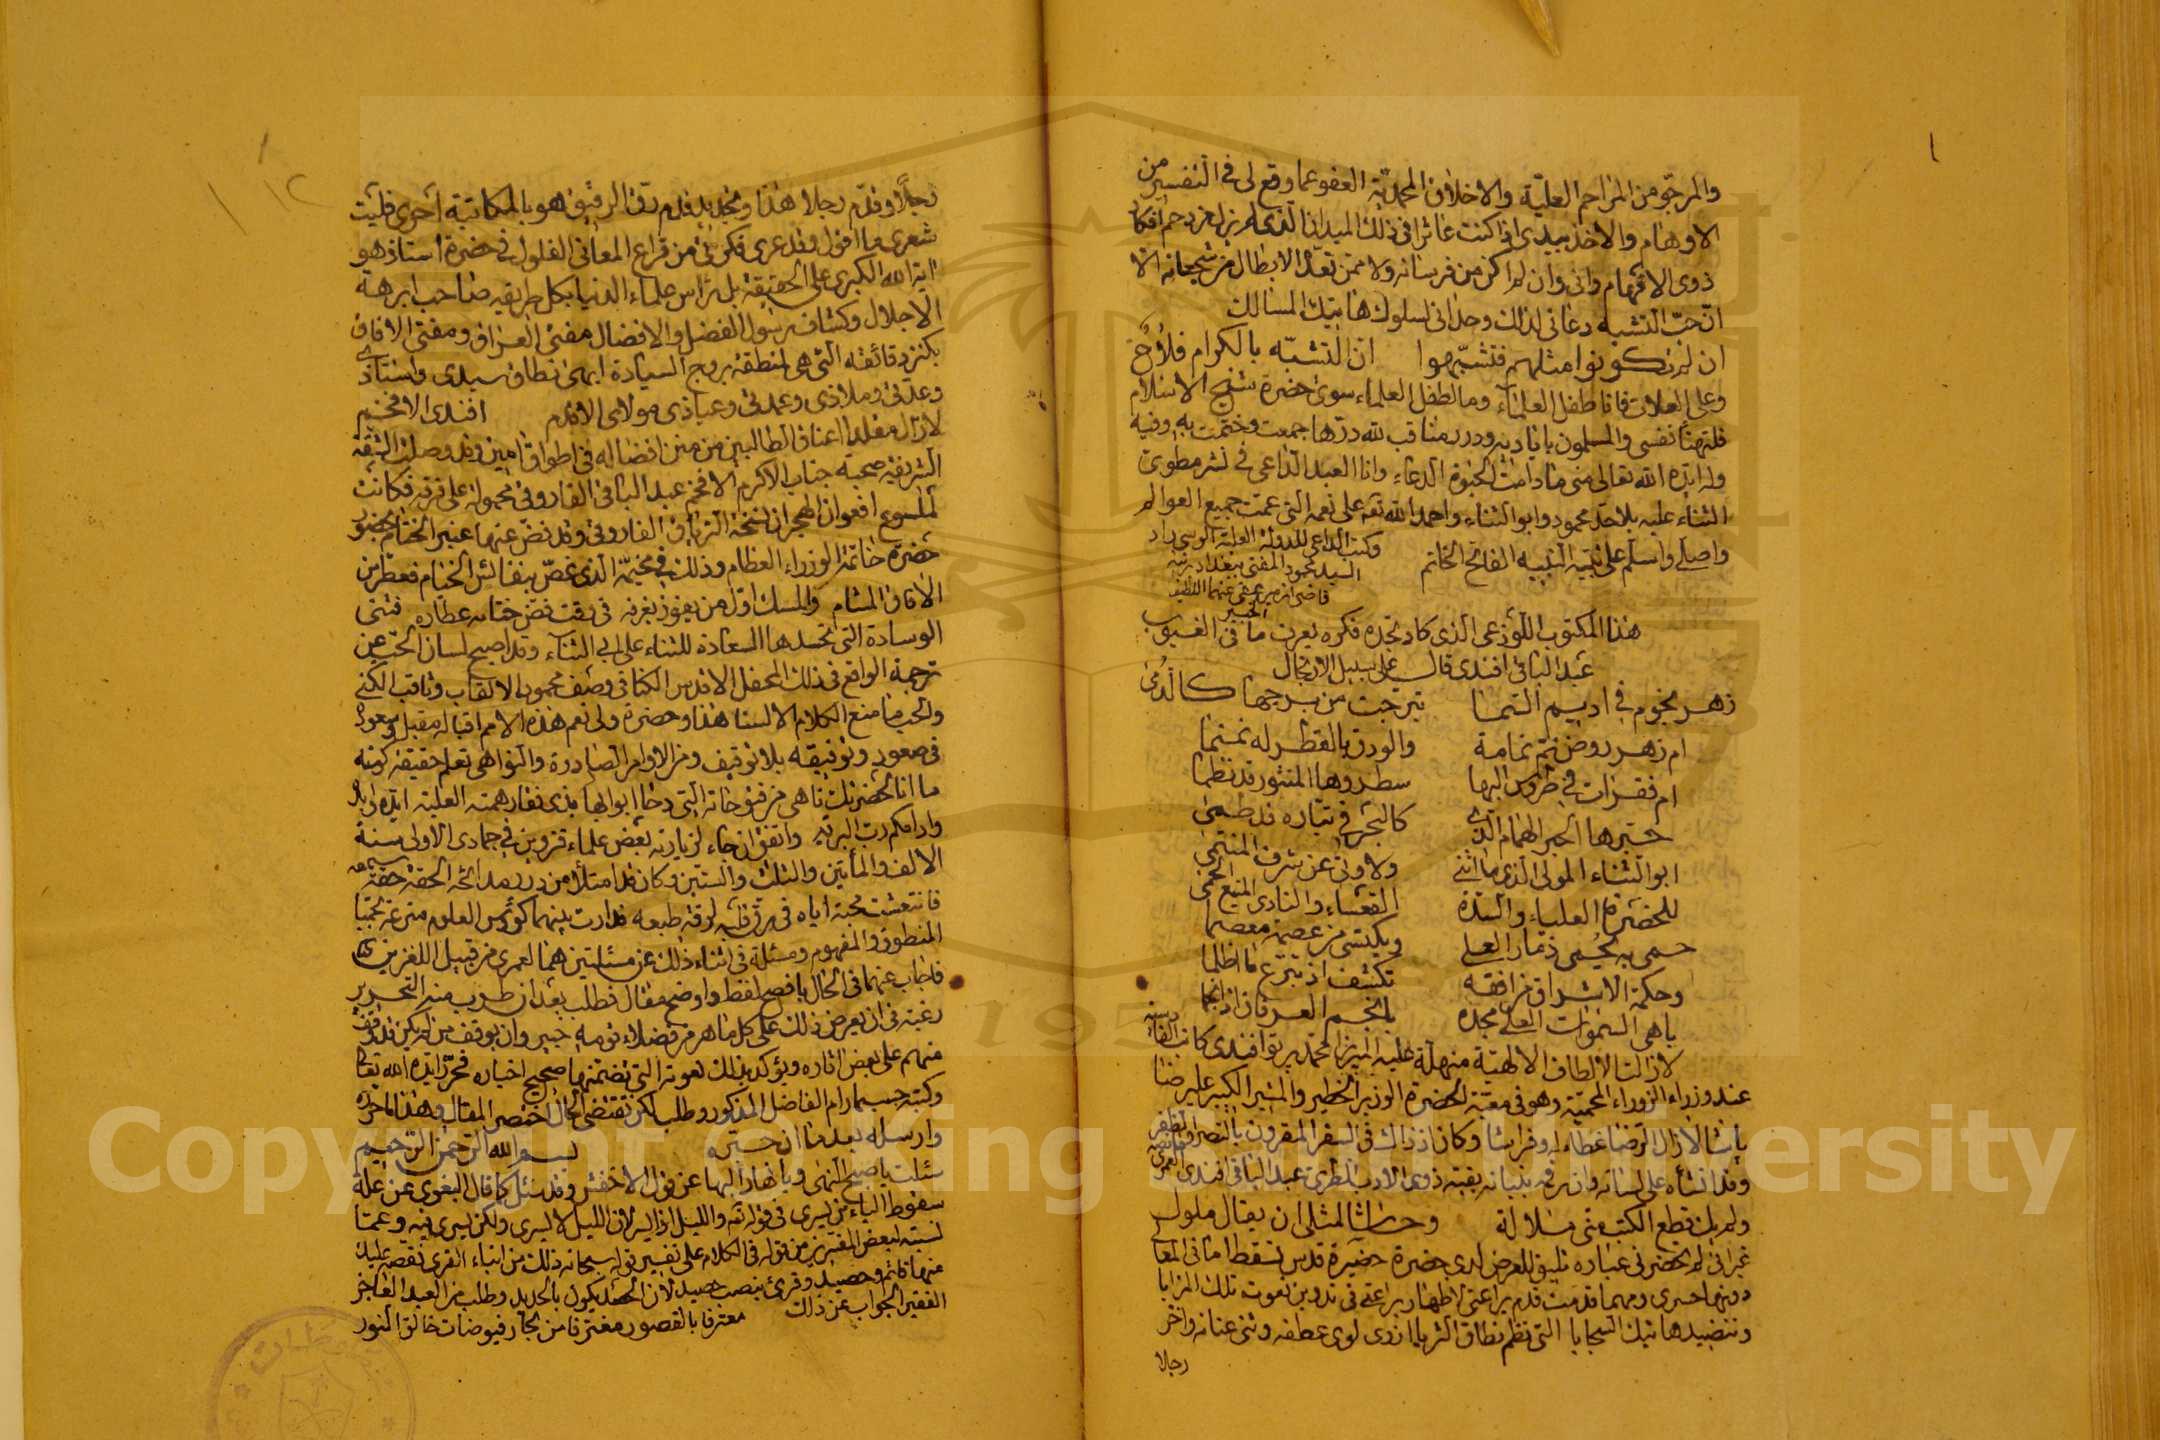 والمرجو من المراحم العلية والاخلاق المحمدية العفو عما وقع لى فى التفسير من
الاوهام والاخذ بيدى اذ كنت عاثرا فى ذلك الميدان الذى لم يزل
ذوى الافهام وانى وان لم اكن من فرسانه ولا ممن تعد الابطال من شجعانه الا
ان حب التشبه دعانى لذلك وحدانى لسلوك هاتيك المسالك
ان لم تكونوا مثلهم فتشبهوا ان التشبه بالكرام فلاح
وعلى العلات فانا طفل العلماء وما لطفل العلماء سوى حضرة شيخ الاسلام
ودرر مناقب لله درها جمعت وختمت به وفيه
وله ايده الله تعالى منى ما دامت الدعاء وانا العبد الداعى فى نشر مطوى
الثناء عليه بلا حد محمود وابو الثناء واحمد الله تعه على نعمه التى عمت جميع العوالم
واصلى واسلم على نبيه النبيه الفاتح الخاتم وكتب الداعى للدولة العلية
السيد محمود المفتى ببغداد
عفى عنهما اللطيف
الخبير
هذا المكتوب اللوذعى الذى كاد بحده فكره يعرف ما فى الغيوب
عبد الباقى افندى قال على سبيل الارتجال
زهر نجوم فى اديم السما تبرجت من برجها كالدمى
ام زهر روض نم نمامة والورق بالقطر له نمنما
ام فقرات فى طروس البها سطروها المنثور قد نظما
حبرها الحبر الهمام الذى كالبحر فى تياره قد طمى
ابو الثناء المولى الذى ما انثنى ولا ونى عن شرف المنتمى
للحضرة العلياء والسدة القعساء والنادى المنيع الحمى
حمى به يحمى ذمار العلى ويكتسى من عصمة معصما
وحكمة الاشراق من افقه تكشف اذ تبزغ ما اظلما
باهى السموات العلى مجده بانجم العرفان اذ انجما
لا زالت الالطاف الالهية منهلة عليه
عند وزراء الزوراء المحمية وهو فى معية الحضرة الوزير الخطير والمشير الكبير على رضا
باشا لا زال الرضا غطاء له وفراشا وكان اذ ذاك فى السفر المقرون بالنصر والظفر
وقد انشاه على لسانه وان رقمه ببنانه بقية ذوى الادب الطرى عبد الباقى افندى العمرى
ولم يك قطع الكتب عنى ملالة وحاشا لمثلى ان يقال ملول
غير انى لم تحضرنى عبارة تليق للعرض لدى حضرة حضيرة قدس تسقط امانى المعالى
دونها حسرى ومهما قدمت قدم يراعتى لاظهار براعتى فى تدوين نعوت تلك المزايا
وتنضيد هاتيك السجايا التى نظم نطاق الثريا ازرى لوى عطفه وثنى عنانه واخر
رجلا
رجلا وقدم رجلا هذا ومحمد بد قدم رق الرقيق هو بالمكاتبة احرى فليت
شعرى ما اقول وقد عرى فكرتى من قراع المعانى الفلول فى حضرة استاذ هو
اية الله الكبرى على الحقيقة بل نراس علماء الدنيا بكل طريقه صاحب ابرهة
الاجلال وكشاف رسول الفضل والافضال مفتى العراق ومفتى الافاق
بكنز دقائقه التى هى لمنطقة بروج السيادة ابهى نطاق سيدى واستاذى
وعدتى وملاذى وعمدتى وعياذى مولاى الاقدم افندى الافخم
لازال مقلدا اعناق الطالبين من منن افضاله فى اطواق امين وقد وصلت النميقة
الشريفة صحبة جناب الاكرم الافخم عبد الباقى الفاروقى محمولة على فرقه فكانت
لملسوع افعوان الهجران نسخة الترياق الفاروقى وقد فض عنها عنبر الختام بحضور
حضرة خاتمة الوزراء العظام وذلك فى مخيمه الذى غص بنفائس الخيام فعطر من
الافاق المشام والمسك اول من يفوز بعرفه فى وقت فض ختامه عطاره فثنى
الوسادة التى تحسدها السعادة للثناء على ابى الثناء وقد اصبح لسان المحب عين
ترجمة الواقع فى ذلك المحفل الاقدس الكافى وصف محمود الالقاب وثاقب الكنى
والحب ما منع الكلام الالسنا هذا وحضرة ولى نعم هذه الامم اقباله مقبل وسعوده
فى صعود وتوفيقه بلا توقيف ومن الاوامر الصادرة والنواهى تعلم حقيقة كونه
وادامكم رب البريه واتفق ان جاء لزيارته بعض علماء قزوين فى جمادى الاولى سنة
الالف والمأتين والثلث والستين وكان قد امتلأ من درر مدائحه الحقة حقة سمعه
فانتعشت محبة اياه فى رق قلبه لرقة طبعه فدارت بينهما كؤوس العلوم مترعة بحميا
المنطوق والمفهوم ومسئلة فى اثناء ذلك عن مسئلتين هما لعمرى من قبيل اللغزين
فاجاب عنهما فى الحال بافصح لفظ واوضح مقال فطلب بعد ان طرب منه التحرير
رغبة فى ان يعرض ذلك على كل ماهر من فضلاء قومه خبير وان يوقف من لم يكن قد وقف
منهم على بعض اثاره ويؤكد بذلك نعوته التى تضمنها صحيح اخباره فحرر ايده الله تعالى
وكتبه حسبما رام الفاضل المذكور وطلب لكن تقتضى الحال اختصر المقال وهذا ما حرره
وارسله بعد ما ان حبره بسم الله الرحمن الرحيم
سئلت يا صبح النهى ويا نهار البها عن قول الاخفش وقد سئل كما قال البغوى عن علة
سقوط الياء من يسرى فى قوله تعه والليل اذا يسر لان الليل لا يسرى ولكن يسرى فيه وعما
نسبته لبعض المفسرين من قوله فى الكلام على تفسير قوله سبحانه ذلك من انباء القرى نقصه عليك
منها قائم وحصيد وقرئ بنصب حصيد لان الحصد يكون بالحديد وطلب من العبد العاجز
الفقير الجواب عن ذلك معترفا بالقصور مغترفا من بحار فيوضات خالق النور
Copyright © King Saud University